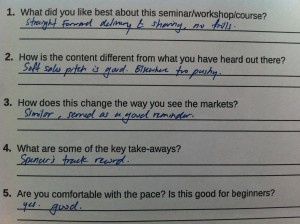 1. What did you like best about this seminar/workshop/course?
Straight forward delivery & sharing, no frills.
2. How is the content different from what you have heard out there?
Soft sales pitch is good. Elsewhere too pushy.
3. How does this change the way you see the markets?
Similar, served as a good reminder.
4. What are some of the key take-aways?
Spencer's track record.
5. Are you comfortable with the pace? Is this good for beginners?
yes. good.